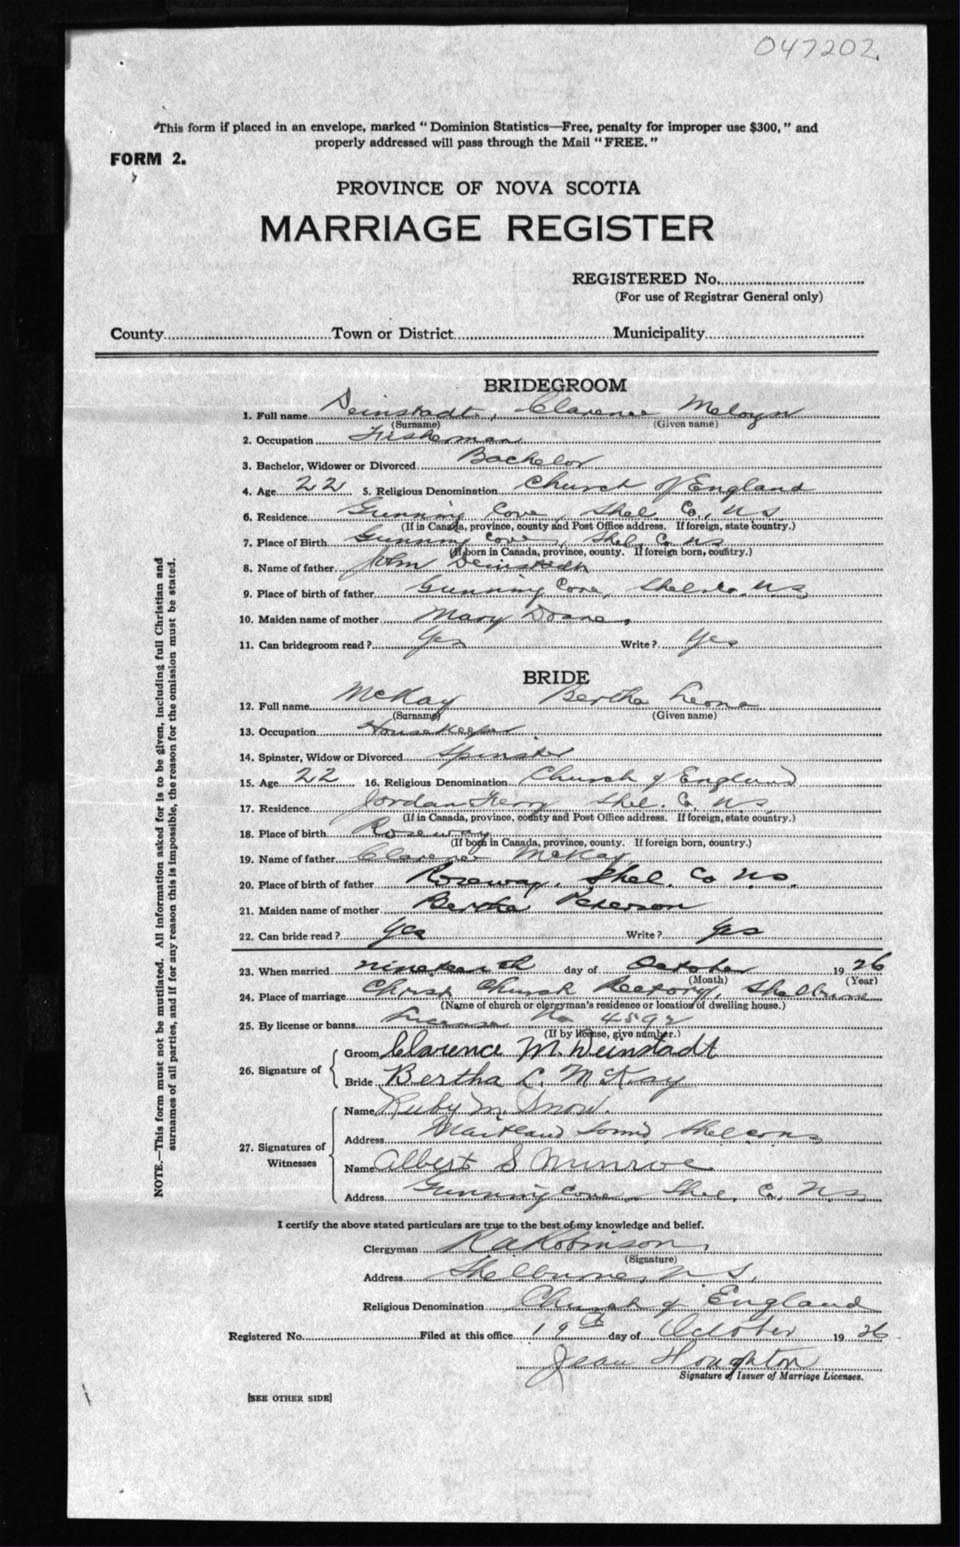 047202.
"This form if placed in an envelope, marked "Dominion Statistics—Free, penalty for improper use $300," and
properly addressed will pass through the Mail "FREE."
FORM 2.
PROVINCE OF NOVA SCOTIA
MARRIAGE REGISTER
REGISTERED No.
(For use of Registrar General only)
County Town or District Municipality
BRIDEGROOM
1. Full name Deinstadt, Clarence
(Surname) (Given name)
2. Occupation Fisherman
3. Bachelor, Widower or Divorced Bachelor
4. Age 22 5. Religious Denomination Church of England
6. Residence Gunning Cove, Shel. Co., N.S.
(If in Canada, province, county and Post Office address. If foreign, state country.)
7. Place of Birth Gunning Cove, Shel. Co. N.S
(If born in Canada, province, county. If foreign born, country.)
8. Name of father John Deinstadt
9. Place of birth of father Gunning Cove, Shel. Co. N.S.
10. Maiden name of mother Mary Doane
11. Can bridegroom read? Yes Write? Yes
BRIDE
12. Full name McKay Bertha Leona
(Surname) (Given name)
13. Occupation Housekeeper
14. Spinster, Widow or Divorced Spinster
15. Age 22 16. Religious Denomination Church of England
17. Residence Jordan Ferry Shel. Co. N.S.
(If in Canada, province, county and Post Office address. If foreign, state country.)
18. Place of birth Roseway
(If born in Canada, province, county. If foreign born, country.)
19. Name of father Clarence McKay
20. Place of birth of father Roseway, Shel. Co N.S.
21. Maiden name of mother Bertha Peterson
22. Can bride read? Yes Write? Yes
23. When married nineteenth day of October 19 26
(Month) (Year)
24. Place of marriage Christ Church Rectory, Shelburne
(Name of church or clergyman's residence or location of dwelling house.)
25. By license or banns License No 4592
(If by license, give number.)
26. Signature of
Groom Clarence M. Deinstadt
Bride Bertha L. McKay
27. Signatures of Witnesses
Name Ruby M. Snow.
Address
Name Albert S Munroe
Address Gunning Cove, Shel. Co., N.S
I certify the above stated particulars are true to the best of my knowledge and belief.
Clergyman R A Robinson,
(Signature)
Address Shelburne, N.S.
Religious Denomination Church of England
Registered No. Filed at this office 19th day of October 19 26
Jean Houghton
Signature of Issuer of Marriage Licenses.
[SEE OTHER SIDE]
NOTE.—This form must not be mutilated. All information asked for is to be given, including full Christian and
surnames of all parties, and if for any reason this is impossible, the reason for the omission must be stated.